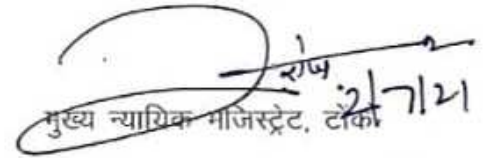 2/7/21
मुख्य न्यायिक मजिस्ट्रेट, टोंक